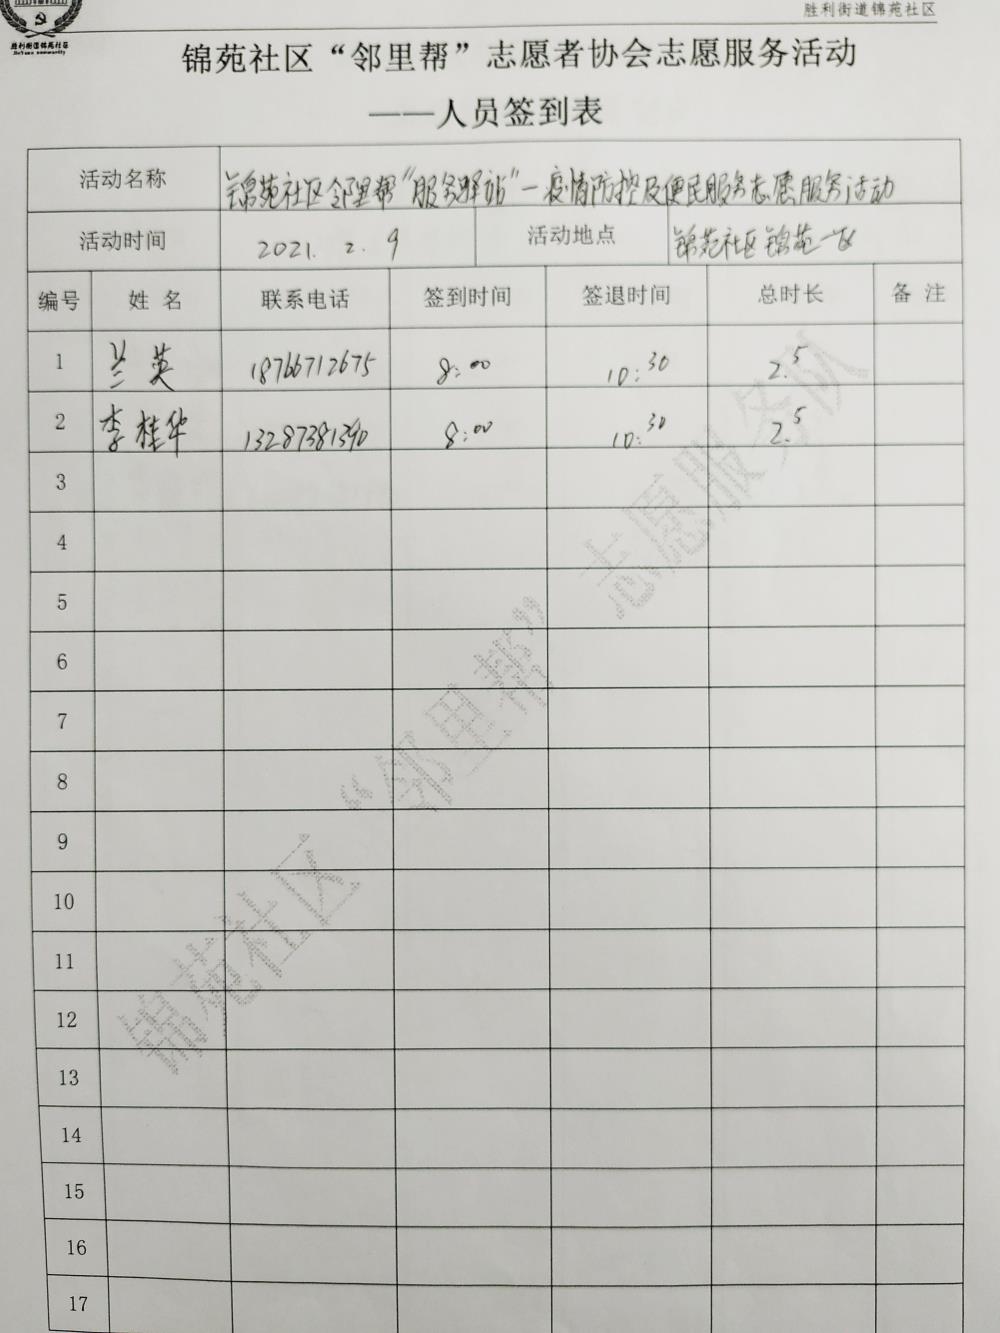 胜利街道锦苑社区
胜利街道锦苑社区
锦苑社区“邻里帮”志愿者协会志愿服务活动
——人员签到表
活动名称 锦苑社区邻里帮“服务驿站”—疫情防控及便民服务志愿服务活动
活动时间 2021.2.9 活动地点 锦苑社区锦苑一区
编号 姓名 联系电话 签到时间 签退时间 总时长 备注
1 兰英 18766712675 8:00 10:30 2.5
2 李桂华 13287381390 8:00 10:30 2.5
3
4
5
6
7
8
9
10
11
12
13
14
15
16
17
锦苑社区“邻里帮”志愿服务队